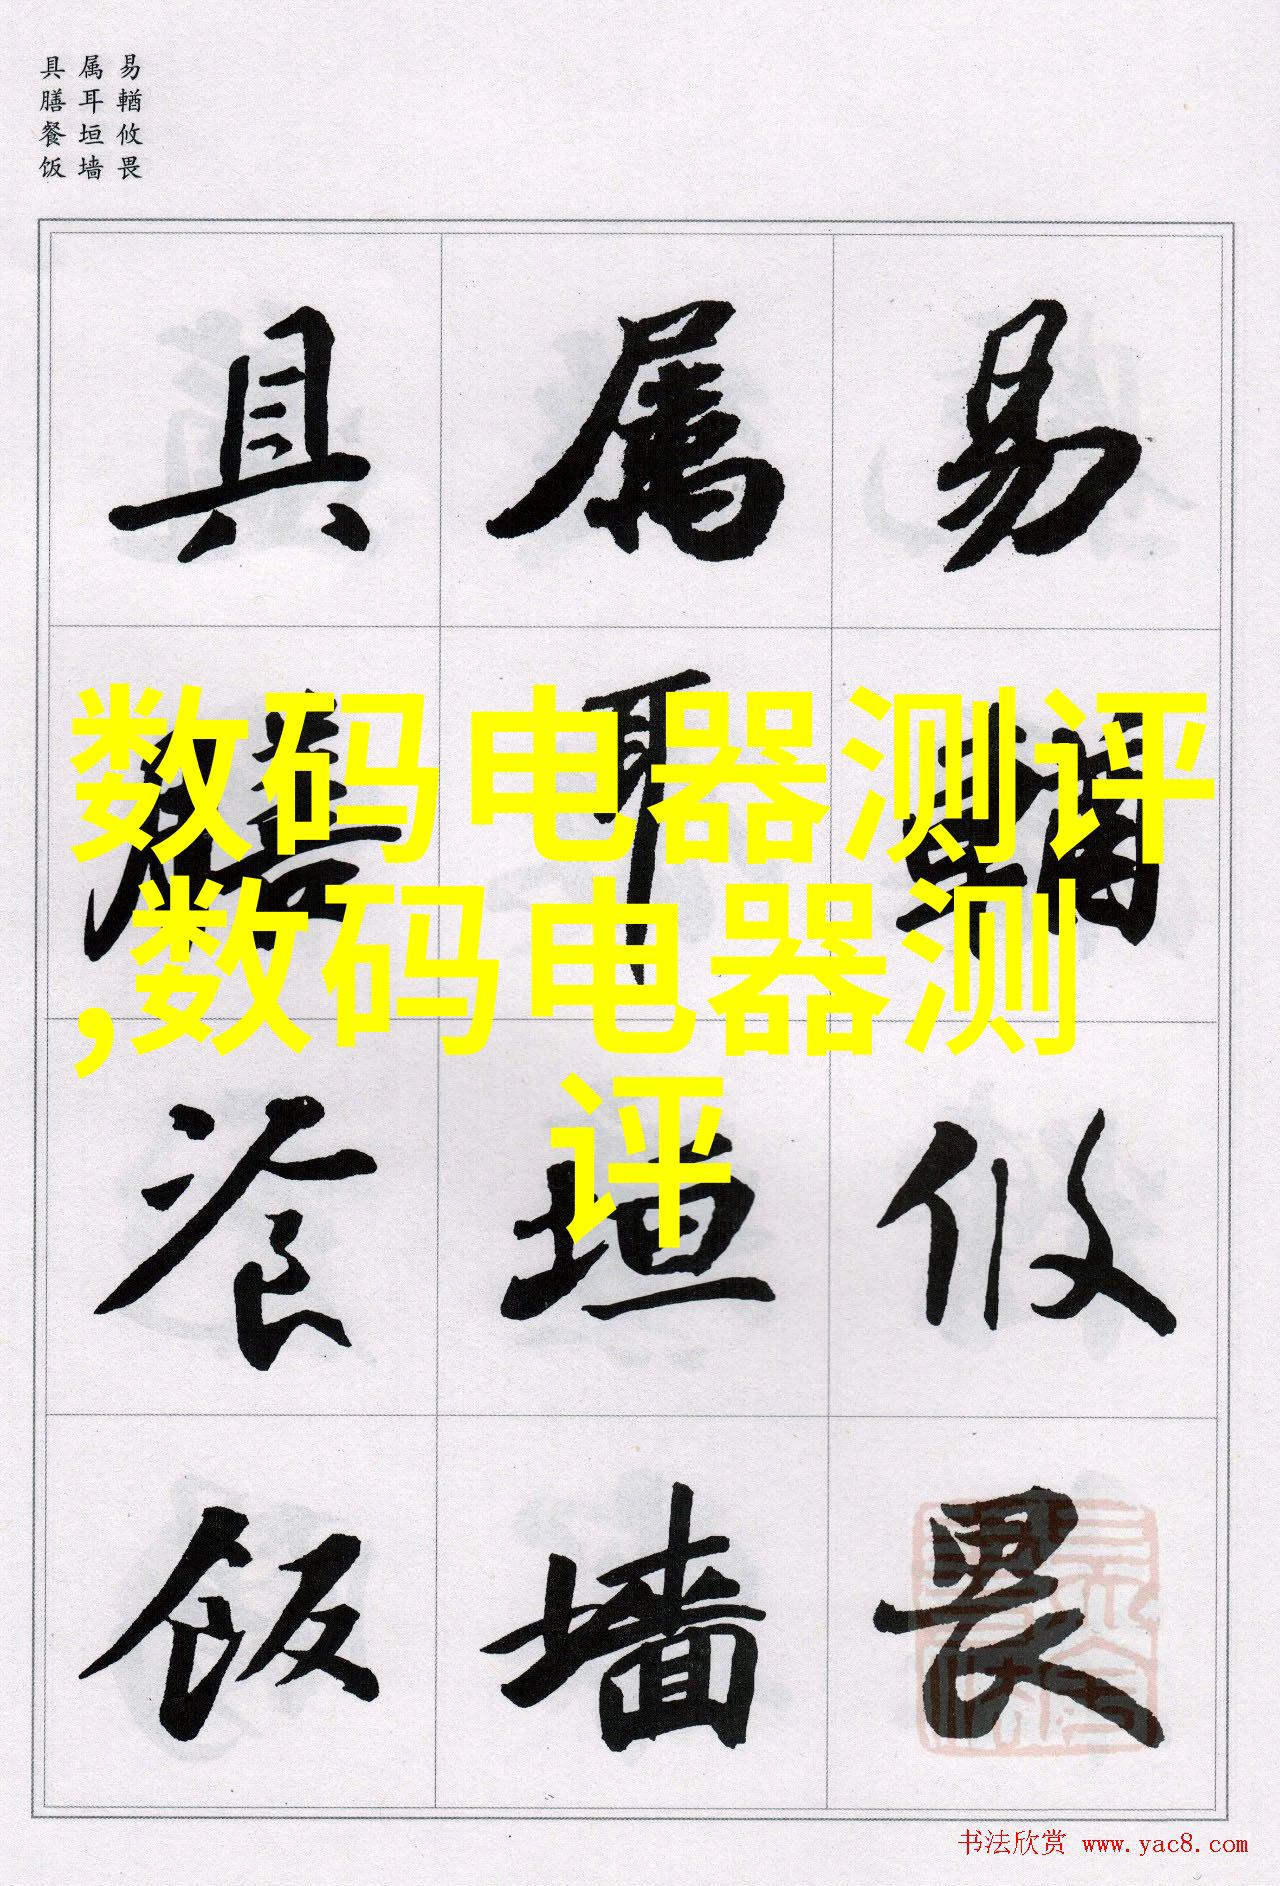 易輶攸畏
属耳垣墙
具膳餐饭
易輶攸畏
属耳垣墙
具膳飡饭
数码电器测评
,数码电器测
评
书法欣赏 www.yac8.com